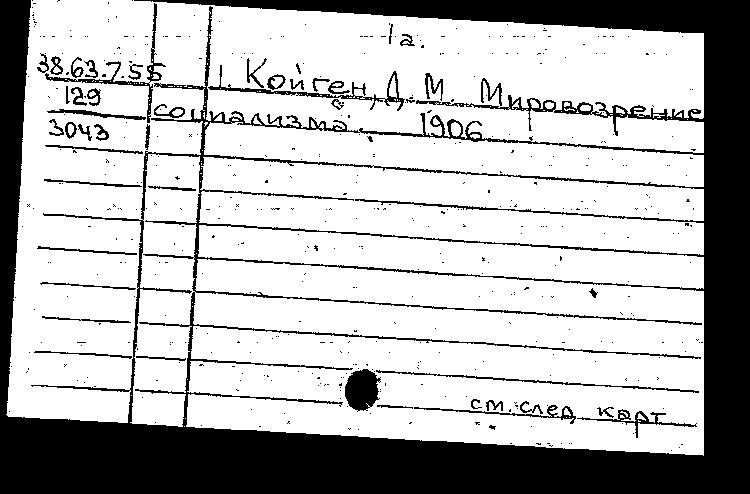 1а.
38.63.7.55 1. Койген, Д. М. Мировозрение
129 социализма. 1906
3043
см. след карт